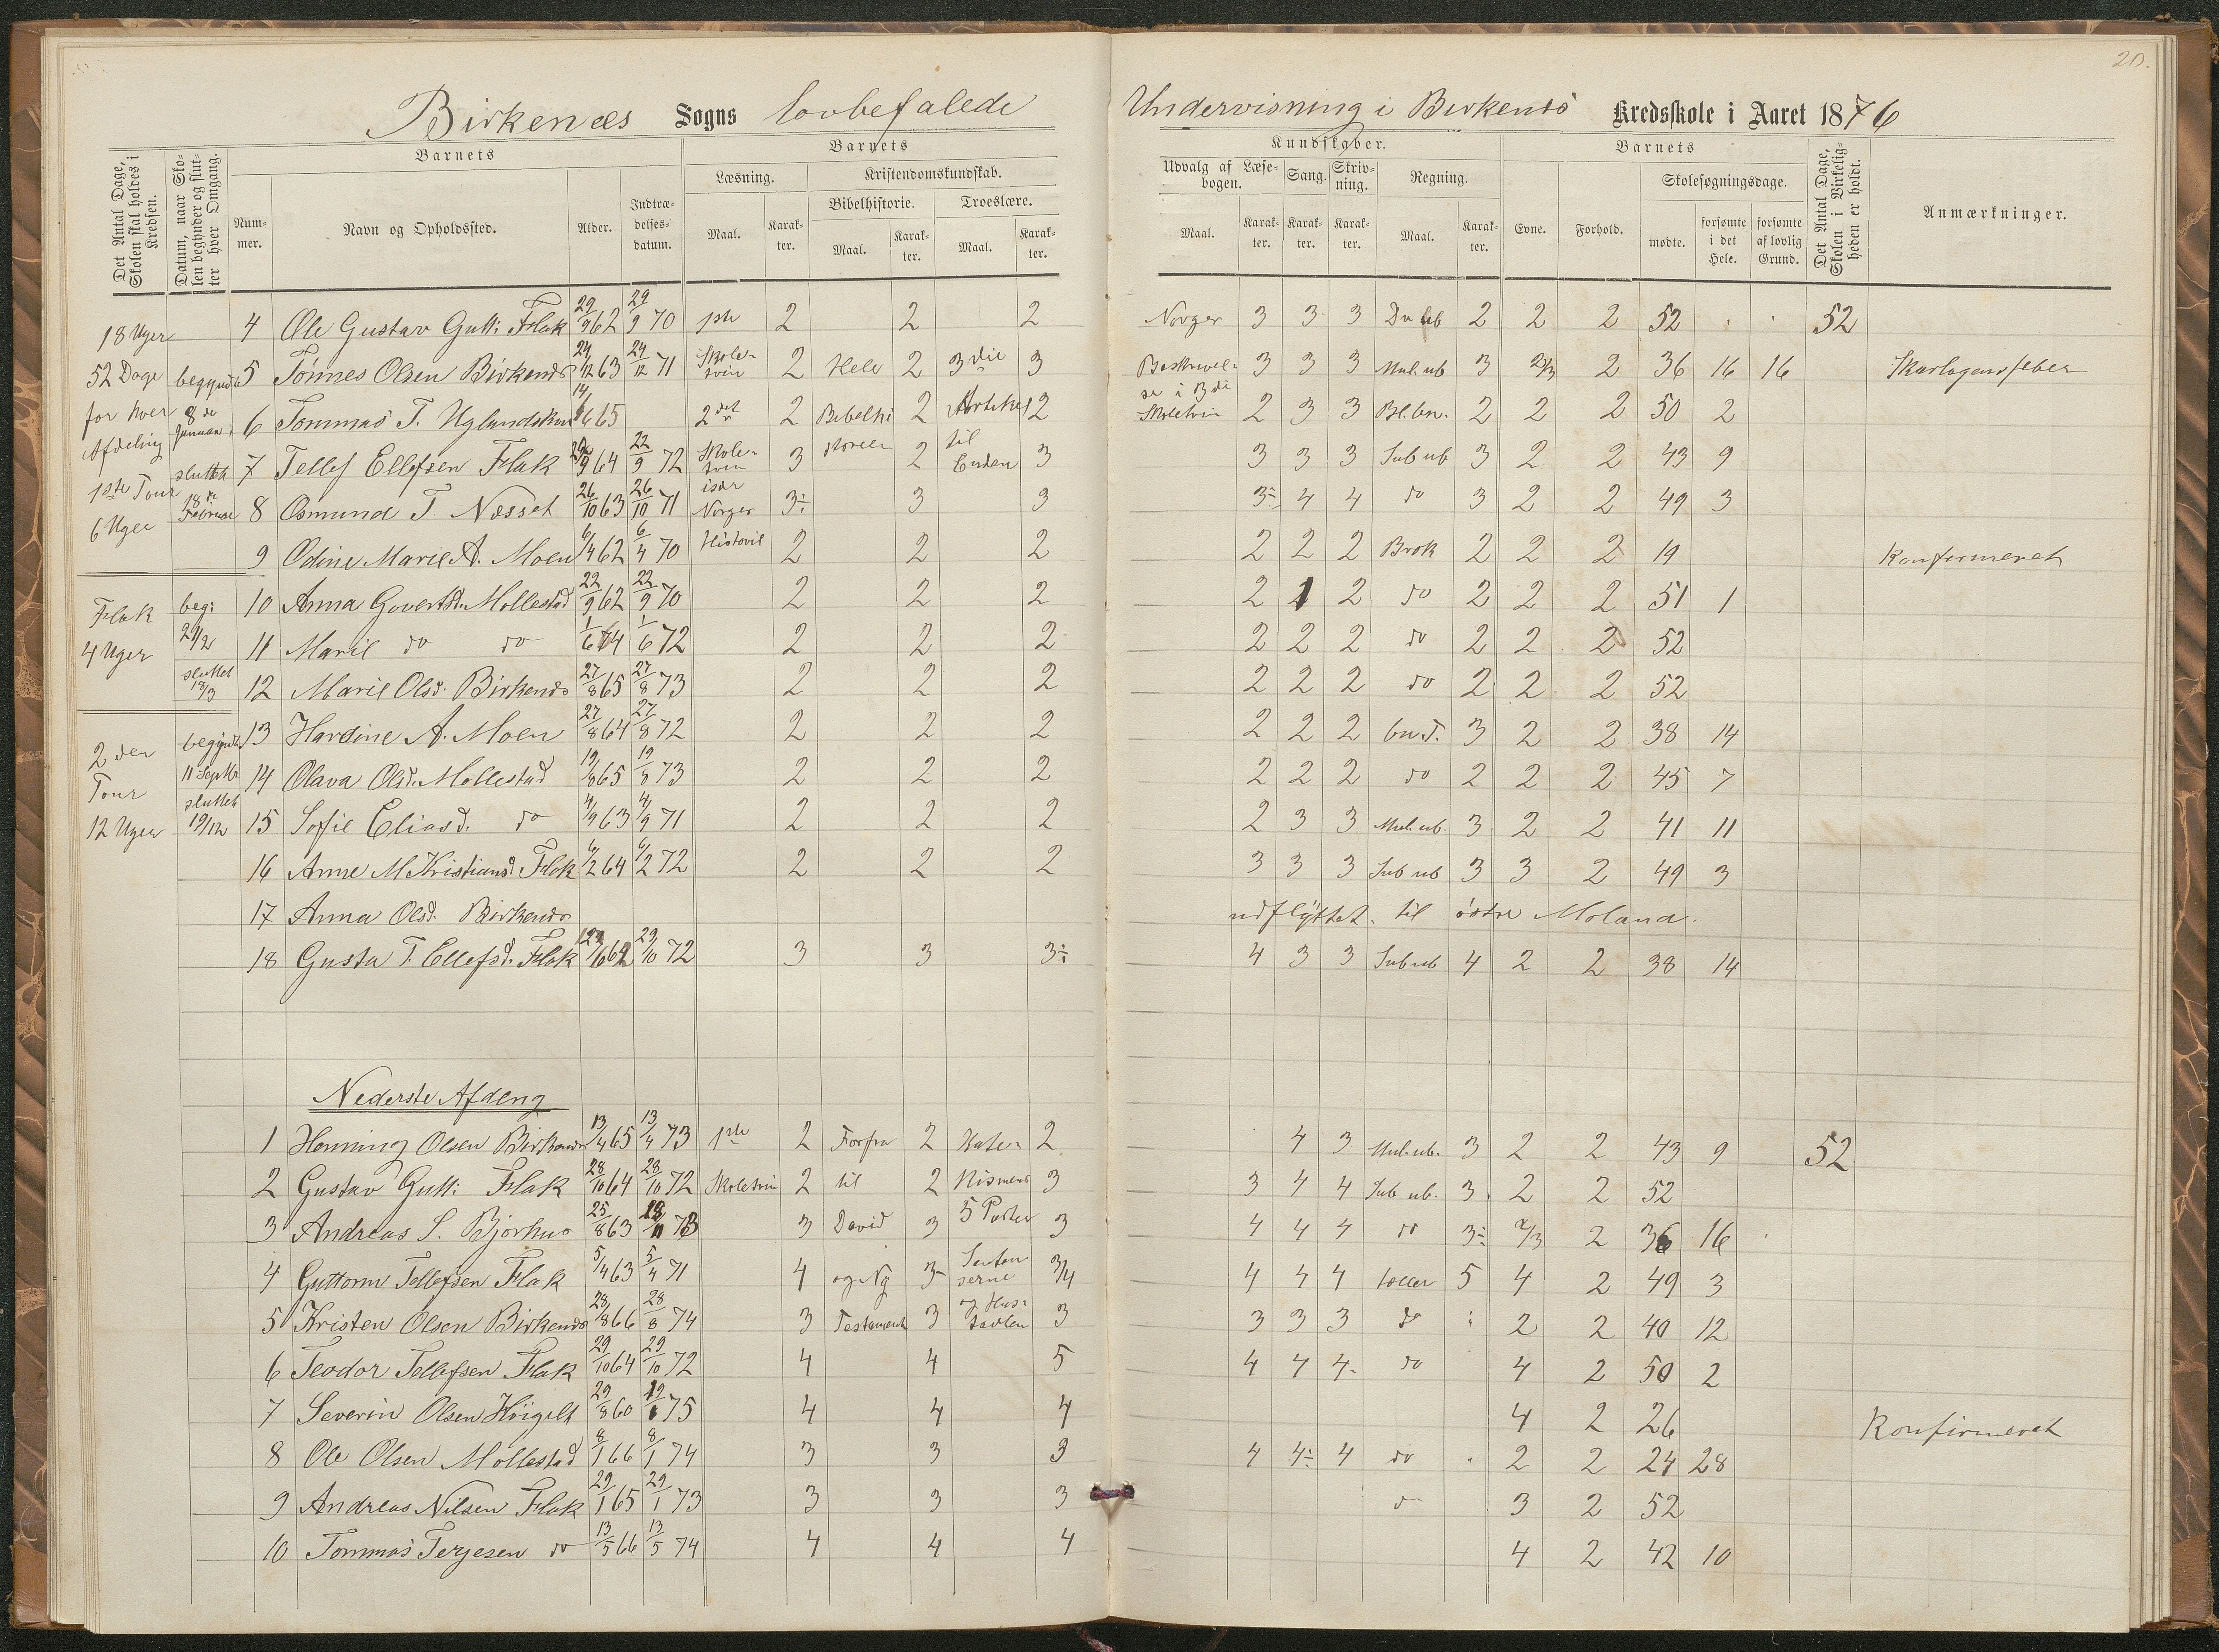 20.
Birkenæs Sogns lovbefalede Undervisning i Birkenæs Kredsskole i Aaret 1876
Det Antal Dage, Skolen skal holdes i Kredsen.
Datum, naar Skolen begynder og slutter hver Omgang.
Barnets
Nummer.
Navn og Opholdssted.
Alder.
Indtrædelsesdatum.
Barnets
Læsning.
Maal.
Karakter.
Kristendomskundskab.
Bibelhistorie.
Maal.
Karakter.
Troeslære.
Maal.
Karakter.
Kundskaber.
Udvalg af Læsebogen.
Maal.
Karakter.
Sang.
Karakter.
Skrivning.
Karakter.
Regning.
Maal.
Karakter.
Barnets
Evne.
Forhold.
Skolesøgningsdage.
mødte.
forsømte i det Hele.
forsømte af lovlig Grund.
Det Antal Dage, Skolen i Virkeligheden er holdt.
Anmærkninger.
18 Uger
52 Dage
for hver
Afdeling
1ste Tour
6 Uger
begyndte
8de
Januar
sluttet
18de
Februar
Flak
4 Uger
beg:
29/2
sluttet
18/3
2den
Tour
12 Uger
begyndte
11 Septbr
sluttet
19/12
4 Ole Gustav Gutt: Flak 29/9 62 29/9 70 1ste 2 2 2 Norges 3 3 3 2 2 2 52 . . 52
5 Tønnes Olsen Birkenæs 24/12 63 24/12 71 Skoletrin 2 Hele 2 3die 3 Beskrivelse i 3die 3 3 3 Mul. ub 3 2/3 2 36 16 16 Skarlagensfeber
6 Tommas T. Uglandskaas 65 2det 2 Bibelhi 2 Artikel 2 Skoletrin 2 3 3 Bl. bn. 2 2 2 50 2
7 Tellef Ellefsen Flak 64 22/9 72 Skoletrin 3 storien 2 til Enden 3 3 3 3 Sub ub 3 2 2 43 9
8 Osmund T. Næsset 26/10 63 26/10 71 især Norges 3÷ 3 3 3÷ 4 4 do 3 2 2 49 3
9 Odine Marie A. Moen 6/4 62 6/4 70 Historie 2 2 2 2 2 2 Brøk 2 2 2 19 Konfirmeret
10 Anna Govertsd. Mollestad 22/9 62 22/9 70 2 2 2 2 1 2 do 2 2 2 51 1
11 Marie do do 1/6 64 1/6 72 2 2 2 2 2 2 do 2 2 2 52
12 Marie Olsd. Birkenæs 27/8 65 27/8 73 2 2 2 2 2 2 do 2 2 2 52
13 Hardine A. Moen 27/8 64 27/8 72 2 2 2 2 2 2 bn. T. 3 2 2 38 14
14 Olava Olsd. Mollestad 19/8 65 19/8 73 2 2 2 2 2 2 do 2 2 2 45 7
15 Sofie Eliasd. do 4/9 63 4/9 71 2 2 2 2 3 3 Mul. ub. 3 2 2 41 11
16 Anne M Kristiansd. Flak 6/2 64 6/2 72 2 2 2 3 3 3 Sub ub 3 3 2 49 3
17 Anna Olsd. Birkenæs udflyttet til østre Moland.
18 Gusta T. Ellefsd. Flak 29/10 72 3 3 3÷ 4 3 3 Sub ub 4 2 2 38 14
Nederste Afdeling
1 Henning Olsen Birkenæs 13/4 65 13/4 73 1ste 2 Forfra 2 Kate- 2 4 3 Mul. ub. 3 2 2 43 9 52
2 Gustav Gutt: Flak 28/10 64 28/10 72 Skoletrin 2 til 2 Kismens 3 3 4 4 Sub ub. 3 2 2 52
3 Andreas S. Bjorhus 25/8 63 73 3 David 3 5 Parter 3 4 4 4 do 3÷ 2/3 2 36 16
4 Guttorm Tellefsen Flak 5/4 63 5/4 71 4 og Ny 3 Sentenserne 3/4 4 4 4 tæller 5 4 2 49 3
5 Kristen Olsen Birkenæs 28/8 66 28/8 74 3 Testament 3 og Hustavlen 3 3 3 3 do 2 2 40 12
6 Teodor Tellefsen Flak 29/10 64 29/10 72 4 4 5 4 4 4 do 4 2 50 2
7 Severin Olsen Höigilt 29/8 60 75 4 4 4 4 2 26 Konfirmeret
8 Ole Olsen Mollestad 8/1 66 8/1 74 3 3 3 4 4÷ 4 do 2 2 24 28
9 Andreas Nilsen Flak 29/1 65 29/1 73 3 3 3 3 2 52
10 Tommas Terjesen do 13/5 66 13/5 74 4 4 4 4 2 42 10